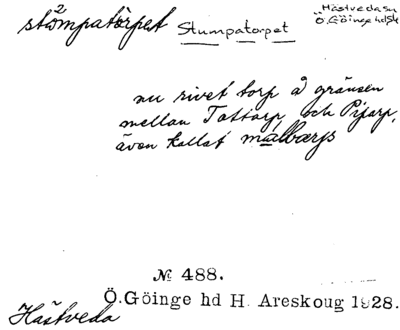 stå2mpatòrpet Stumpatorpet Hästveda sn
Ö. Göinge hd Sk
nu rivet torp å gränsen
mellan Tottarp, och Pijarp,
även kallat målbærjs
№ 488.
Ö.Göinge hd H. Areskoug 1928.
Hästveda